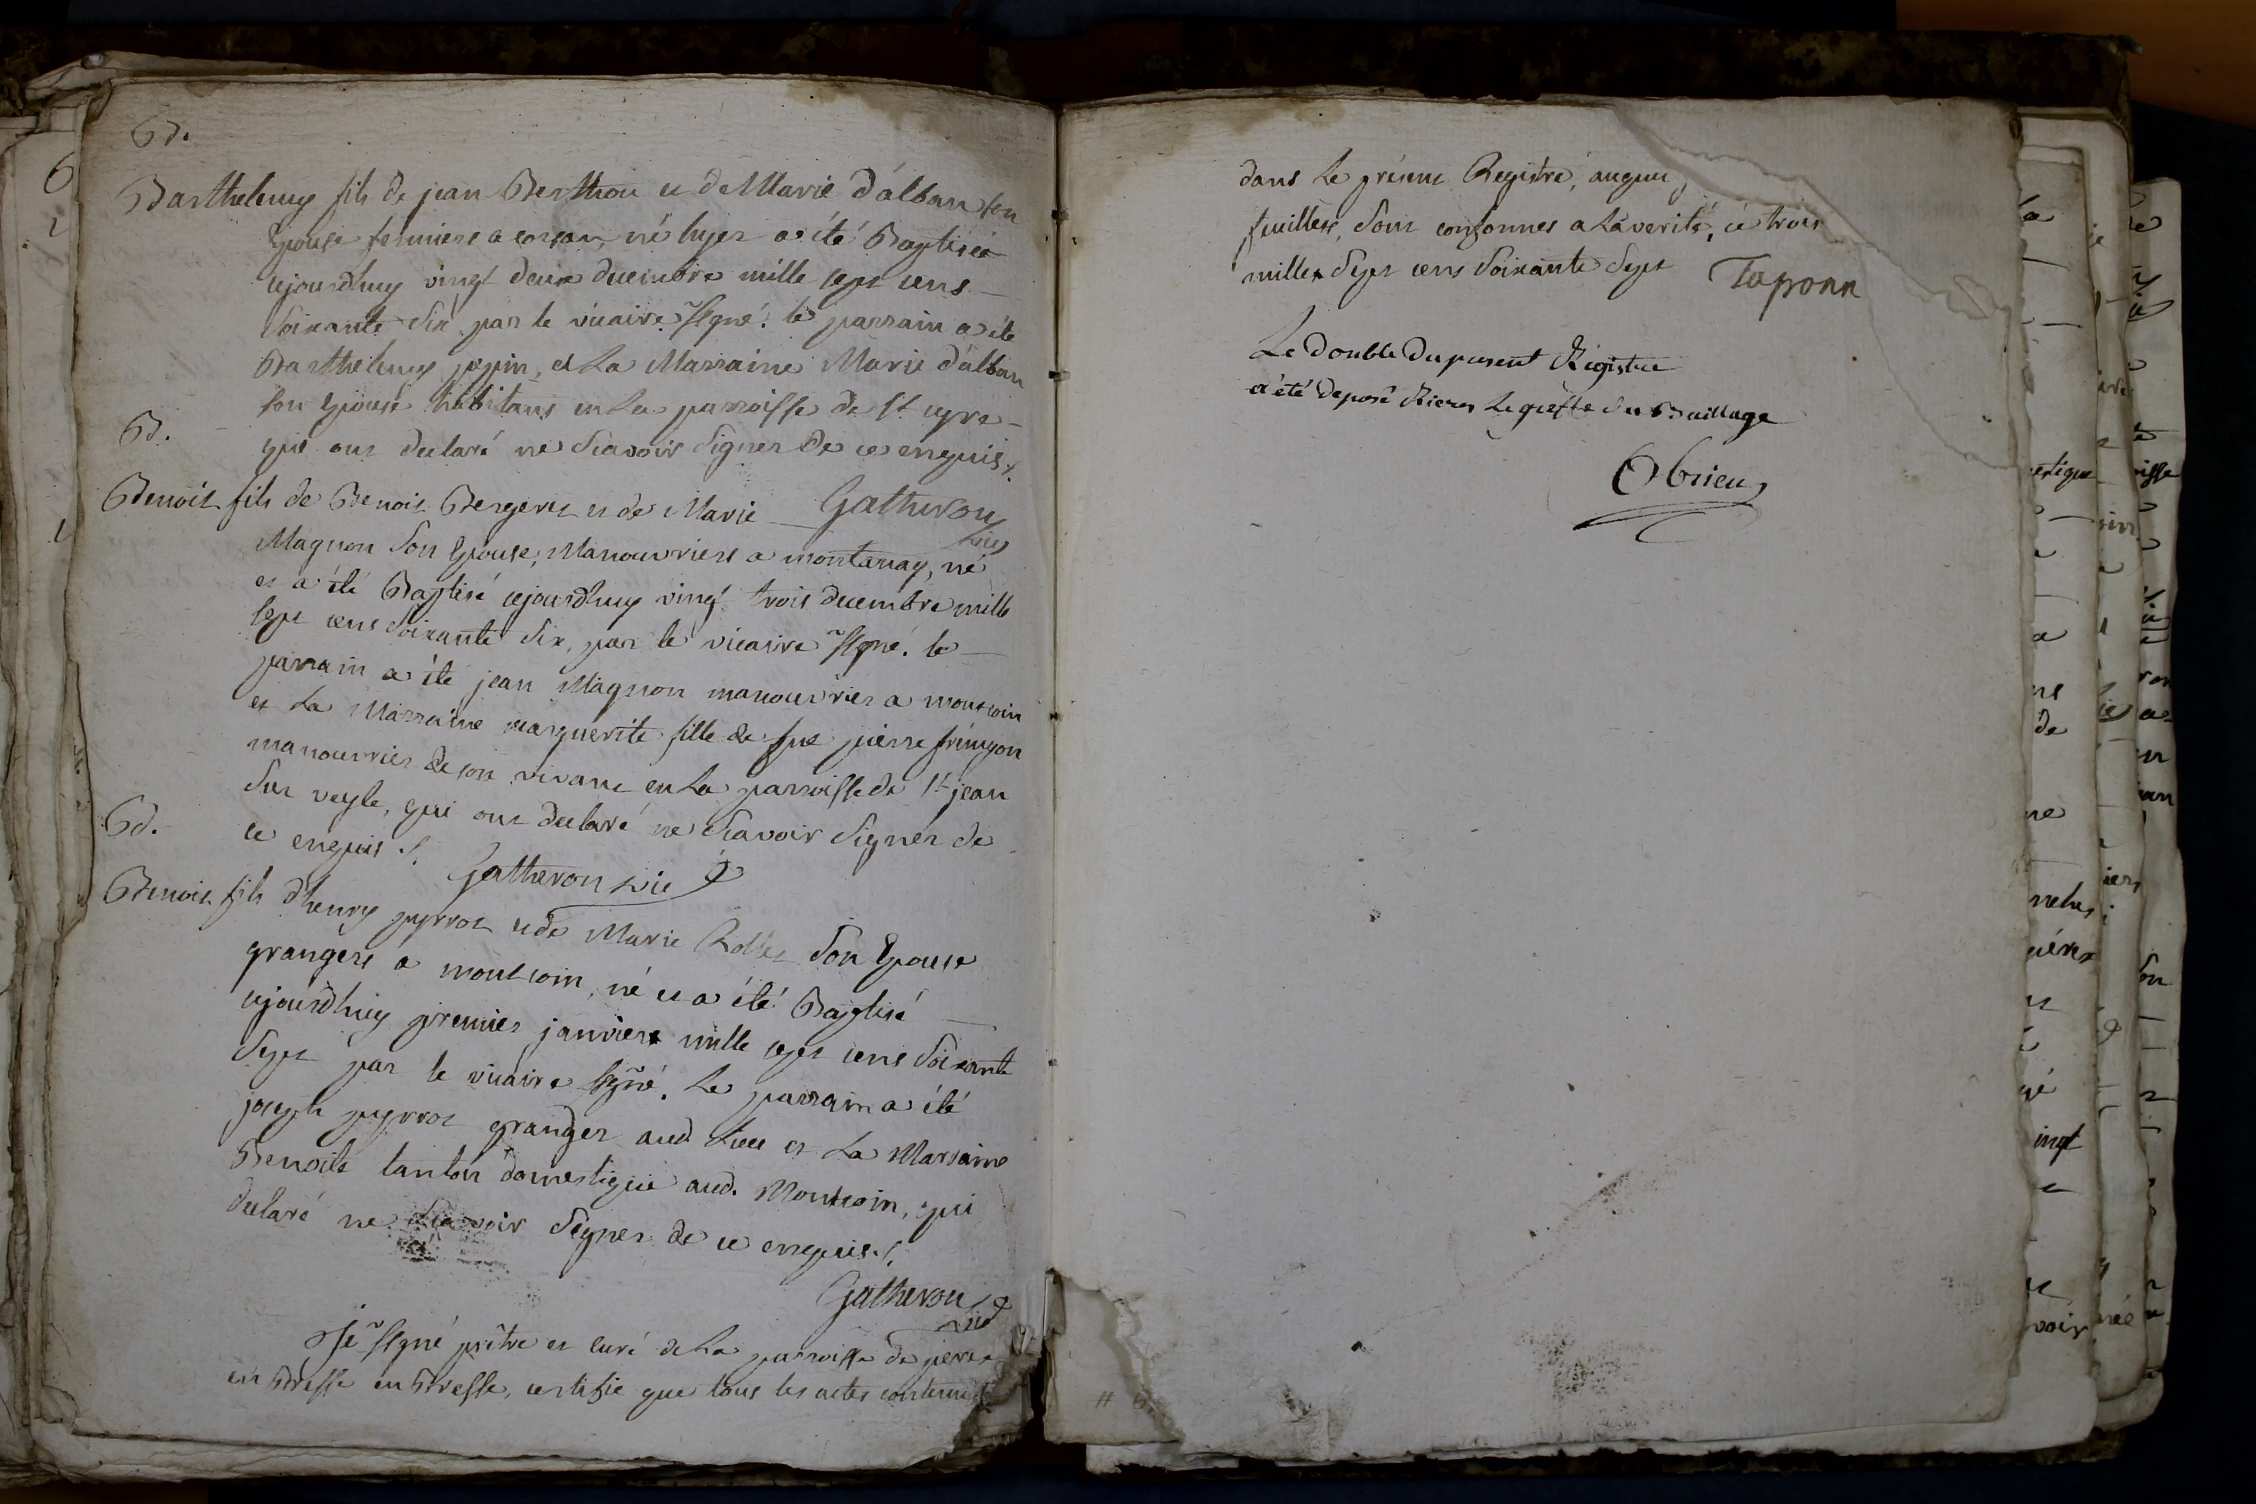 Bd.
Barthelemy fils de jean Berthou et de Marie d'alban son
Epouse fermiers a corsan, né hyer a été Baptisé
cejourdhuy vingt deux decembre mille sept cens
Soixante Six par le vicaire ssigné. le parrain a été
Barthelemy pepin, et La Marraine Marie d'alban
son Epouse habitans en La parroisse de St cyre
qui ont declaré ne Scavoir Signer De ce enquis ./.
B.
Gatheron
vic
Benoit fils de Benoit Bergeret et de Marie
Magnon Son Epouse, Manouvriers a montanay, né
et a été Baptisé cejourdhuy vingt trois decembre mille
sept cens Soixante Six, par le vicaire ssigné. le
parrain a été jean Magnon manouvrier a montcoin
et La Marraine marguerite fille de fue pierre
manouvrier de son vivant en La parroisse de St jean
Sur veyle, qui ont declaré ne Scavoir Signer de
ce enquis ./.
Gatheron vic
Bd.
Benoit fils d'henry pyrroz et de Marie Son Epouse
grangers a montcoin, né et a été Baptisé
cejourdhuy premier janvier mille sept cens Soixante
Sept par le vicaire ssigné. Le parrain a été
joseph pyrroz granger aud. Lieu et La Marraine
Benoite domestique aud. Montcoin, qui
declaré ne Scavoir Signer de ce enquis ./.
Gatheron
vic
Je ssigné prêtre et curé de La parroisse de
en Bresse en Bresse, certifie que tous les actes contenus
dans Le présent Registre,
feuillets, Sont conformes a La verité, ce trois
mille Sept cens Soixante Sept
Taponn
Le Double du present Registre
a été deposé Rieres Le greffe du Baillage
Obrieu